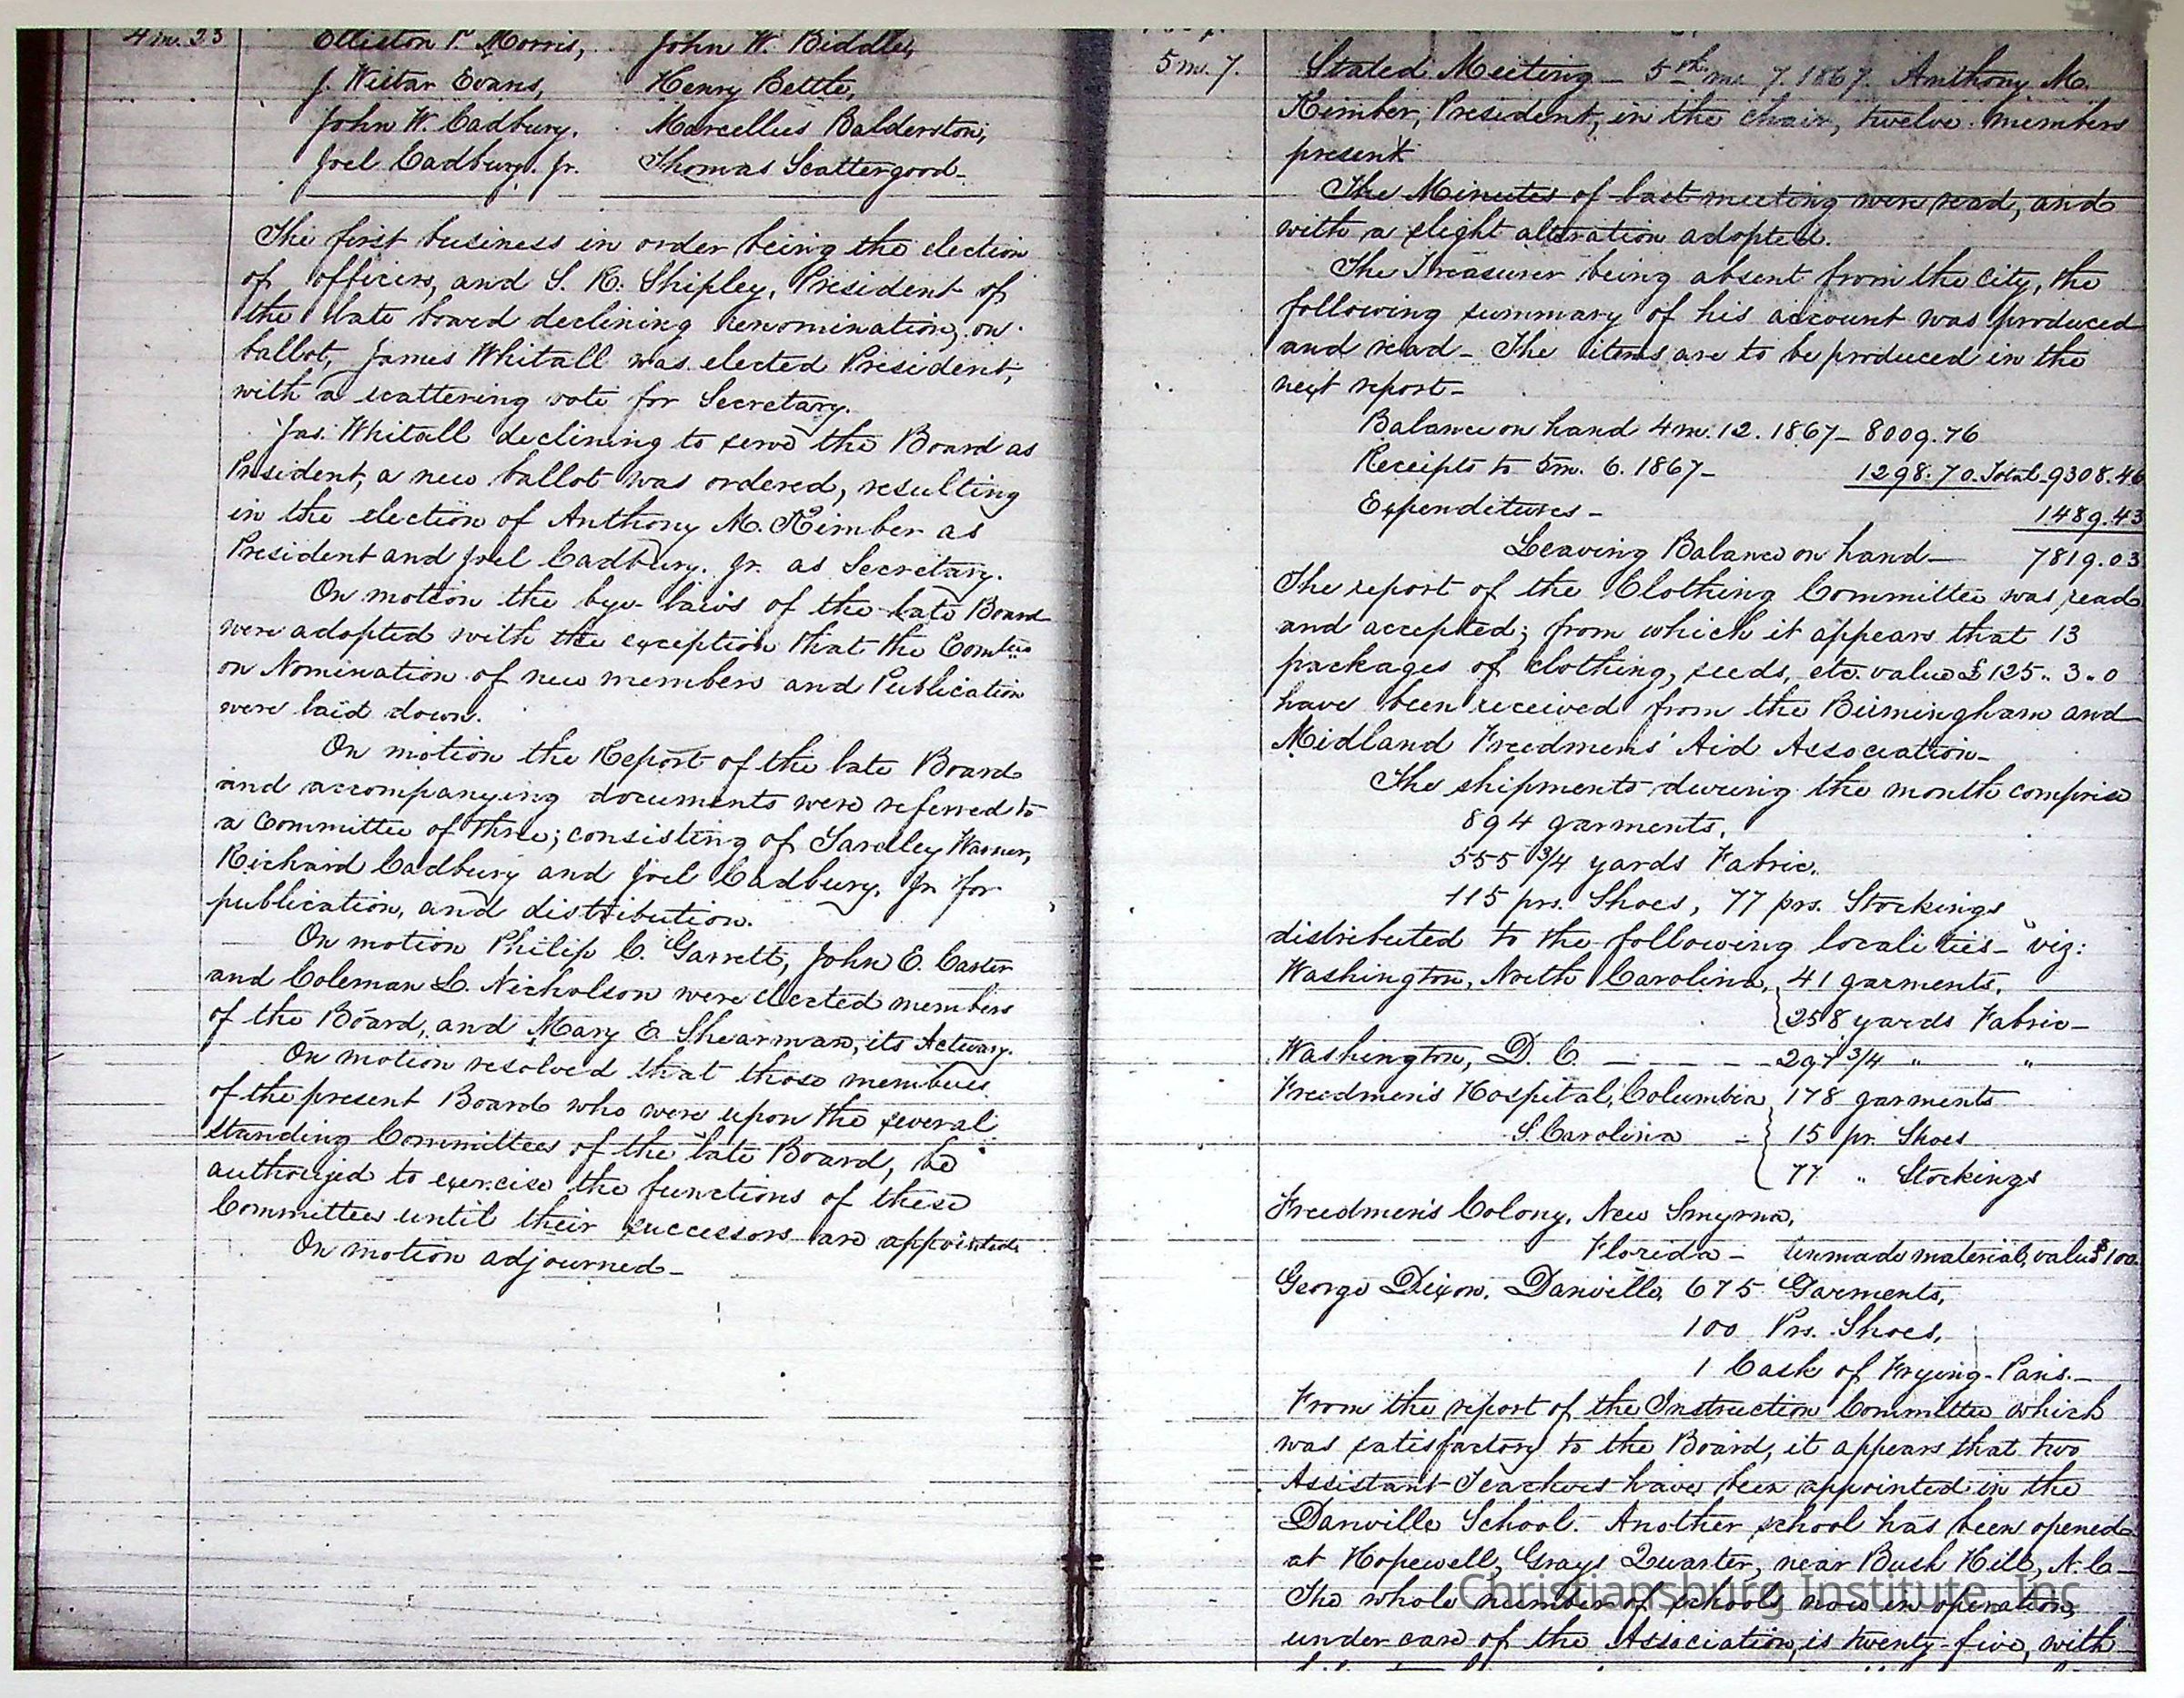 4 m. 23
Elliston P. Morris, John W. Biddle,
J. Wistar Evans, Henry Bettle,
John W. Cadbury, Marcellus Balderston,
Joel Cadbury. Jr. Thomas Scattergood_
The first business in order being the election
of officers, and S. R. Shipley, President of
the late board declining renomination, on
ballot, James Whitall was elected President,
with a scattering vote for Secretary.
Jas. Whitall declining to serve the Board as
President, a new ballot was ordered, resulting
in the election of Anthony M. Kimber as
President and Joel Cadbury. Jr. as Secretary.
On motion the bye-laws of the late Board
were adopted with the exception that the Comtees
on Nomination of new members and Publication
were laid down.
On motion the Report of the late Board
and accompanying documents were referred to
a Committee of three; consisting of Yardley Warner,
Richard Cadbury and Joel Cadbury, Jr. for
publication, and distribution.
On motion Philip C. Garrett, John E. Carter
and Coleman L. Nicholson were elected members
of the Board, and Mary E Shearman, its Actuary.
On motion resolved that those members
of the present Board who were upon the several
standing Committees of the late Board, be
authorized to exercise the functions of these
Committees until their successors are appointed.
On motion adjourned_
5 m. 7.
Stated Meeting_ 5th mo 7. 1867. Anthony M.
Kimber, President, in the chair, twelve members
present.
The Minutes of last meeting were read, and
with a slight alteration adopted.
The Treasurer being absent from the city, the
following summary of his account was produced
and read_ The items are to be produced in the
next report_
Balance on hand 4m. 12. 1867_ 8009.76
Receipts to 5m. 6. 1867_ 1298.70. Total_9308.46
Expenditures_ 1489.43
Leaving Balance on hand_ 7819.03
The report of the Clothing Committee was read
and accepted; from which it appears that 13
packages of clothing, seeds, etc. value £125.. 3.. 0
have been received from the Birmingham and
Midland Freedmens' Aid Association_
The shipments during the month comprise
894 garments.
555 3/4 yards Fabric.
115 prs. Shoes, 77 prs. Stockings
distributed to the following localities_ viz:
Washington, North Carolina, 41 garments,
258 yards Fabric_
Washington, D. C. _ _ _ _ 297 3/4 " "
Freedmen's Hospital, Columbia 178 garments
S. Carolina 15 pr. Shoes
77 " Stockings
Freedmen's Colony, New Smyrna,
Florida_ unmade material, value $100.
George Dixon. Danville, 675 Garments,
100 Prs. Shoes,
1 Cask of Frying-Pans._
From the report of the Instruction Committee which
was satisfactory to the Board, it appears that two
Assistant Teachers have been appointed in the
Danville School. Another school has been opened
at Hopewell, Grays Quarter, near Bush Hill, N. C_
The whole number of schools now in operation,
under care of the Association, is twenty-five, with
Christiansburg Institute, Inc